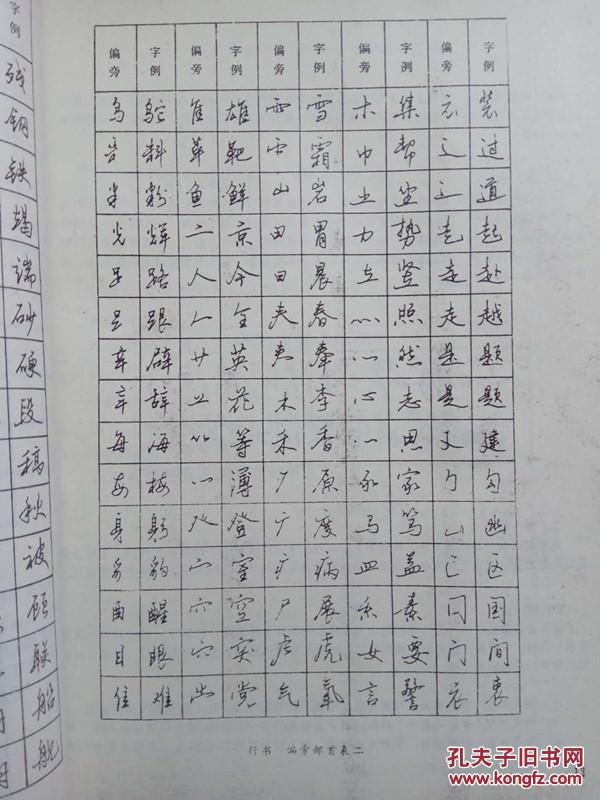 字例
残
钢
铁
竭
端
砂
硬
段
稿
秋
被
顾
联
船
舰
偏旁 字例 偏旁 字例 偏旁 字例 偏旁 字例 偏旁 字例
鸟 鸵 隹 雄 雨 雪 木 集 衣 装
告 靠 革 靶 雨 霜 巾 帮 辶 过
米 粉 鱼 鲜 山 岩 土 坐 辶 道
光 辉 亠 京 田 胃 力 势 走 起
足 路 人 今 日 晨 立 竖 走 赴
足 跟 人 全 春 灬 照 走 越
辛 辟 艹 英 奉 灬 然 是 题
辛 辞 艹 花 木 李 心 志 是 题
每 海 等 禾 香 心 思 廴 建
每 梅 薄 厂 原 豕 家 勹 勾
身 躬 癶 登 广 度 马 笃 凵 幽
豸 豹 宀 室 疒 病 皿 盖 匚 区
酉 醒 穴 空 尸 展 糸 素 囗 国
目 眼 穴 突 虍 虎 女 要 门 间
隹 难 党 气 氧 言 警 衣 衷
行书 偏旁部首表二
13
孔夫子旧书网
www.kongfz.com